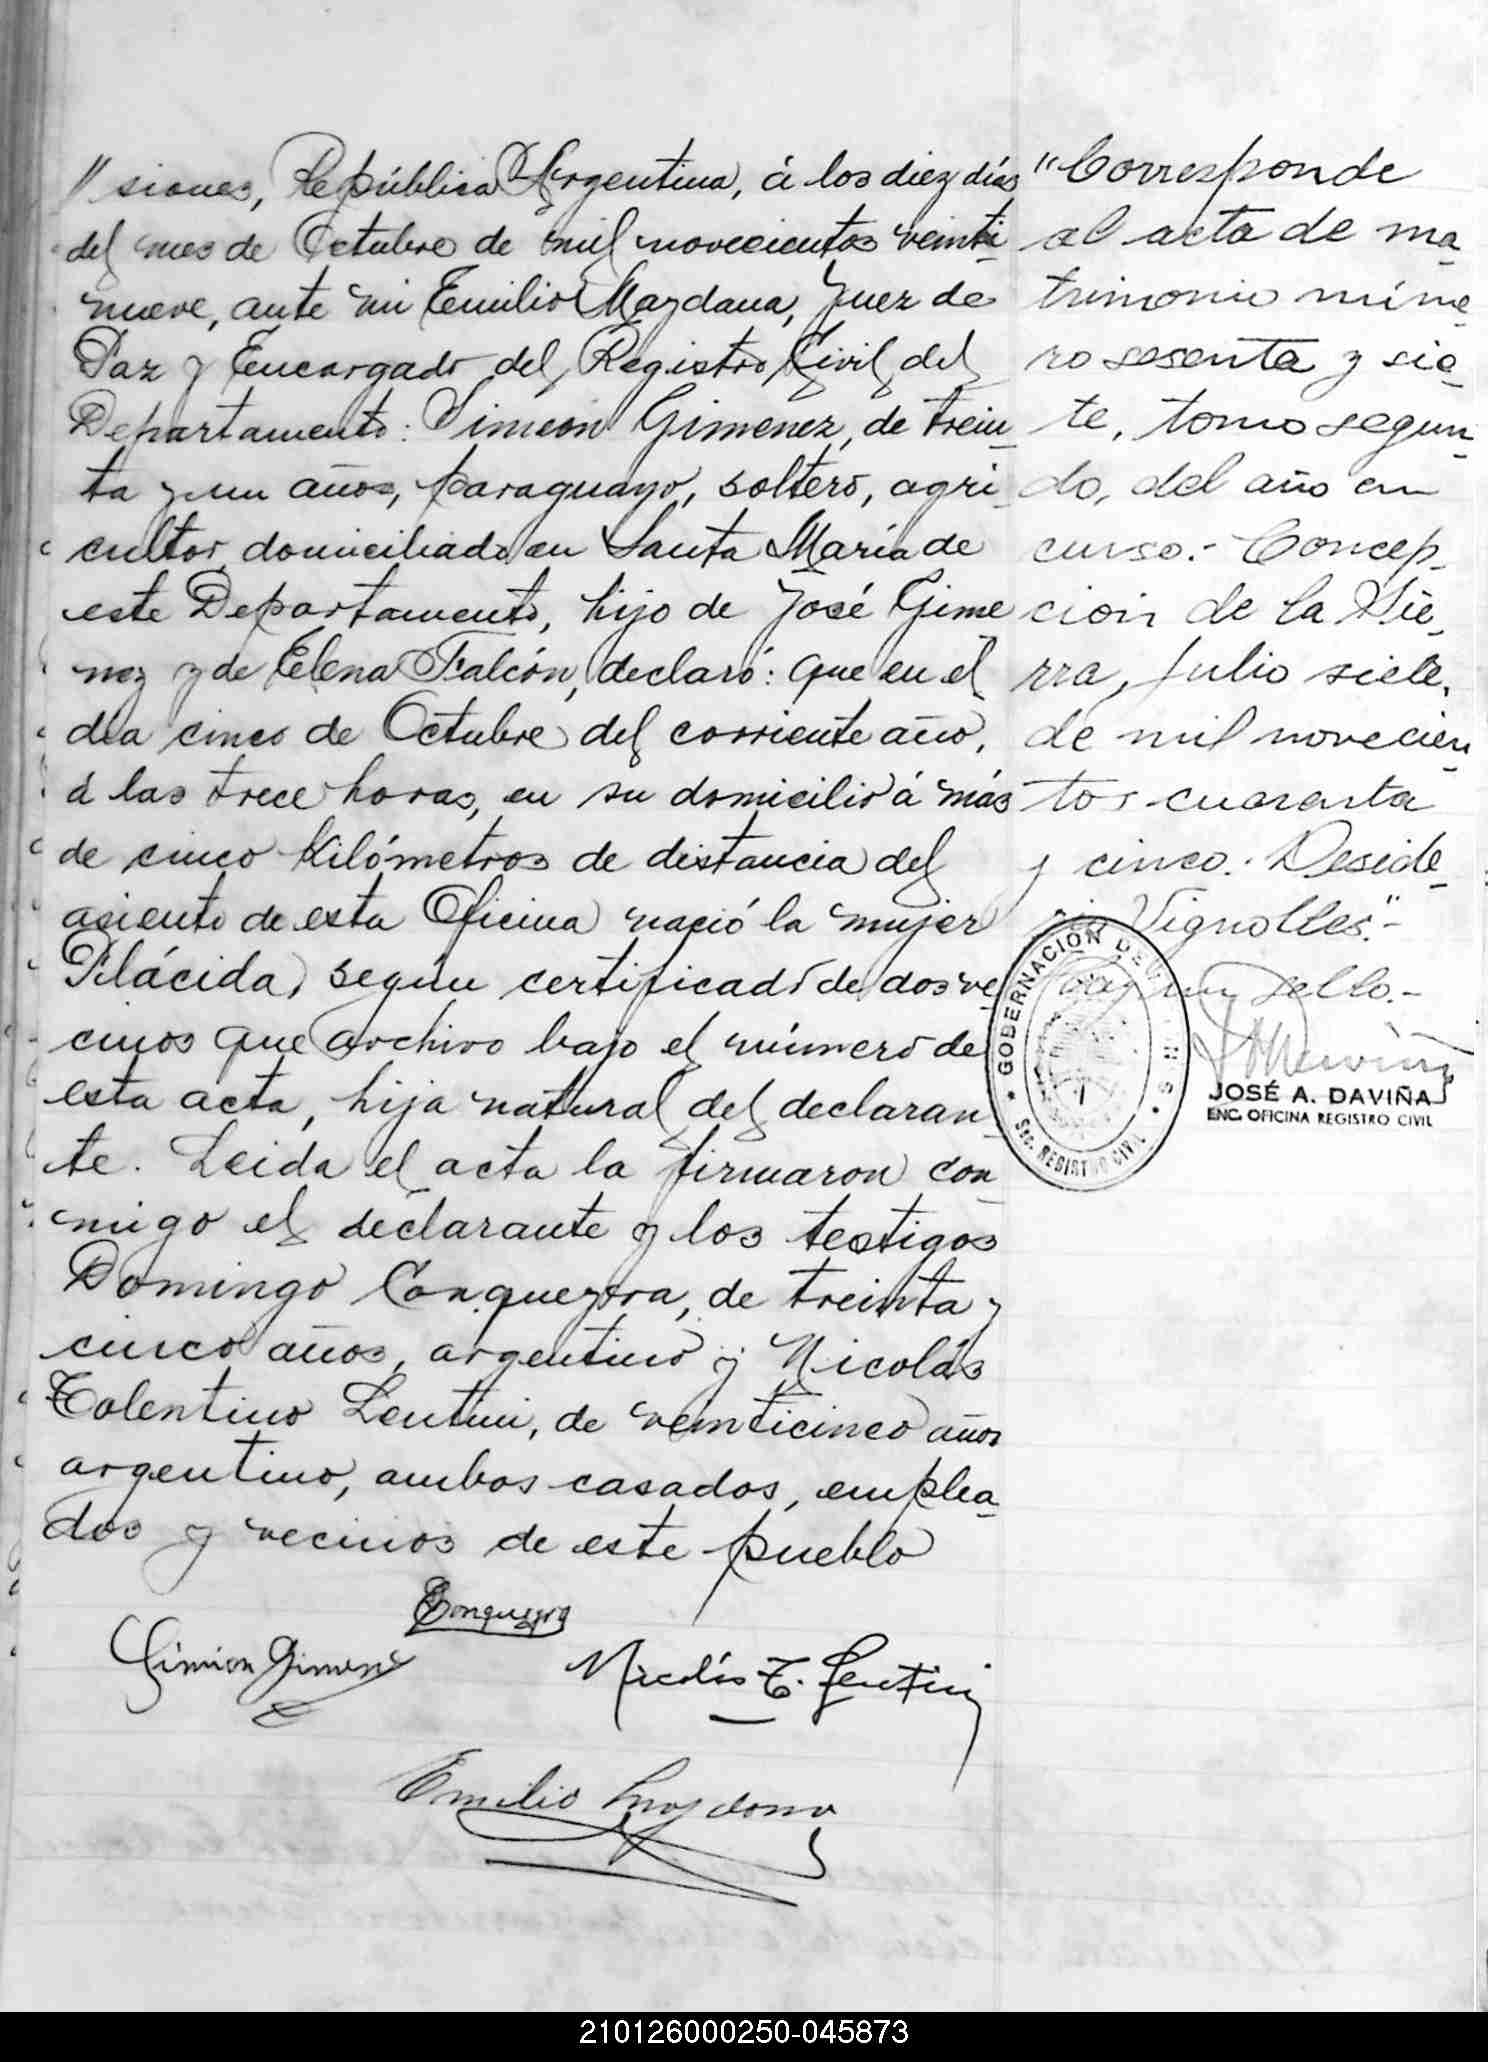 "siones, República Argentina, á los diez días
del mes de Octubre de mil novecientos veinti-
nueve, ante mi Emilio Mazdana, Juez de
Paz y Encargado del Registro Civil del
Departamento: Simeon Gimenez, de trein-
ta y un años, paraguayo, soltero, agri-
cultor, domiciliado en Santa María de
este Departamento, hijo de José Gime
nez y de Elena Falcón, declaró: que en el
día cinco de Octubre del corriente año,
á las trece horas, en su domicilio á más
de cinco kilómetros de distancia del
asiento de esta Oficina nació la mujer
Plácida, según certificado de dos ve
cinos que archivo bajo el número de
esta acta, hija natural del declaran-
te. Leida el acta la firmaron con-
migo el declarante y los testigos
Domingo Conqueyra, de treinta y
cinco años, argentino y Nicolás
Tolentino Lentini, de veinticinco años
argentino, ambos casados, emplea-
dos y vecinos de este pueblo
Conqueyra
Simion Gimenez
Nicolás T. Lentini
Emilio Mazdana
"Corresponde
al acta de ma-
trimonio núme-
ro sesenta y sie-
te, tomo segun-
do, del año en
curso.- Concep-
ción de la Sie-
rra, Julio siete,
de mil novecien-
tos cuarenta
y cinco.- Deside-
rio Vignolles."-
Hay un sello.-
GOBERNACIÓN DE MISIONES
SEC. REGISTRO CIVIL
JOSÉ A. DAVIÑA
ENC. OFICINA REGISTRO CIVIL
210126000250-045873